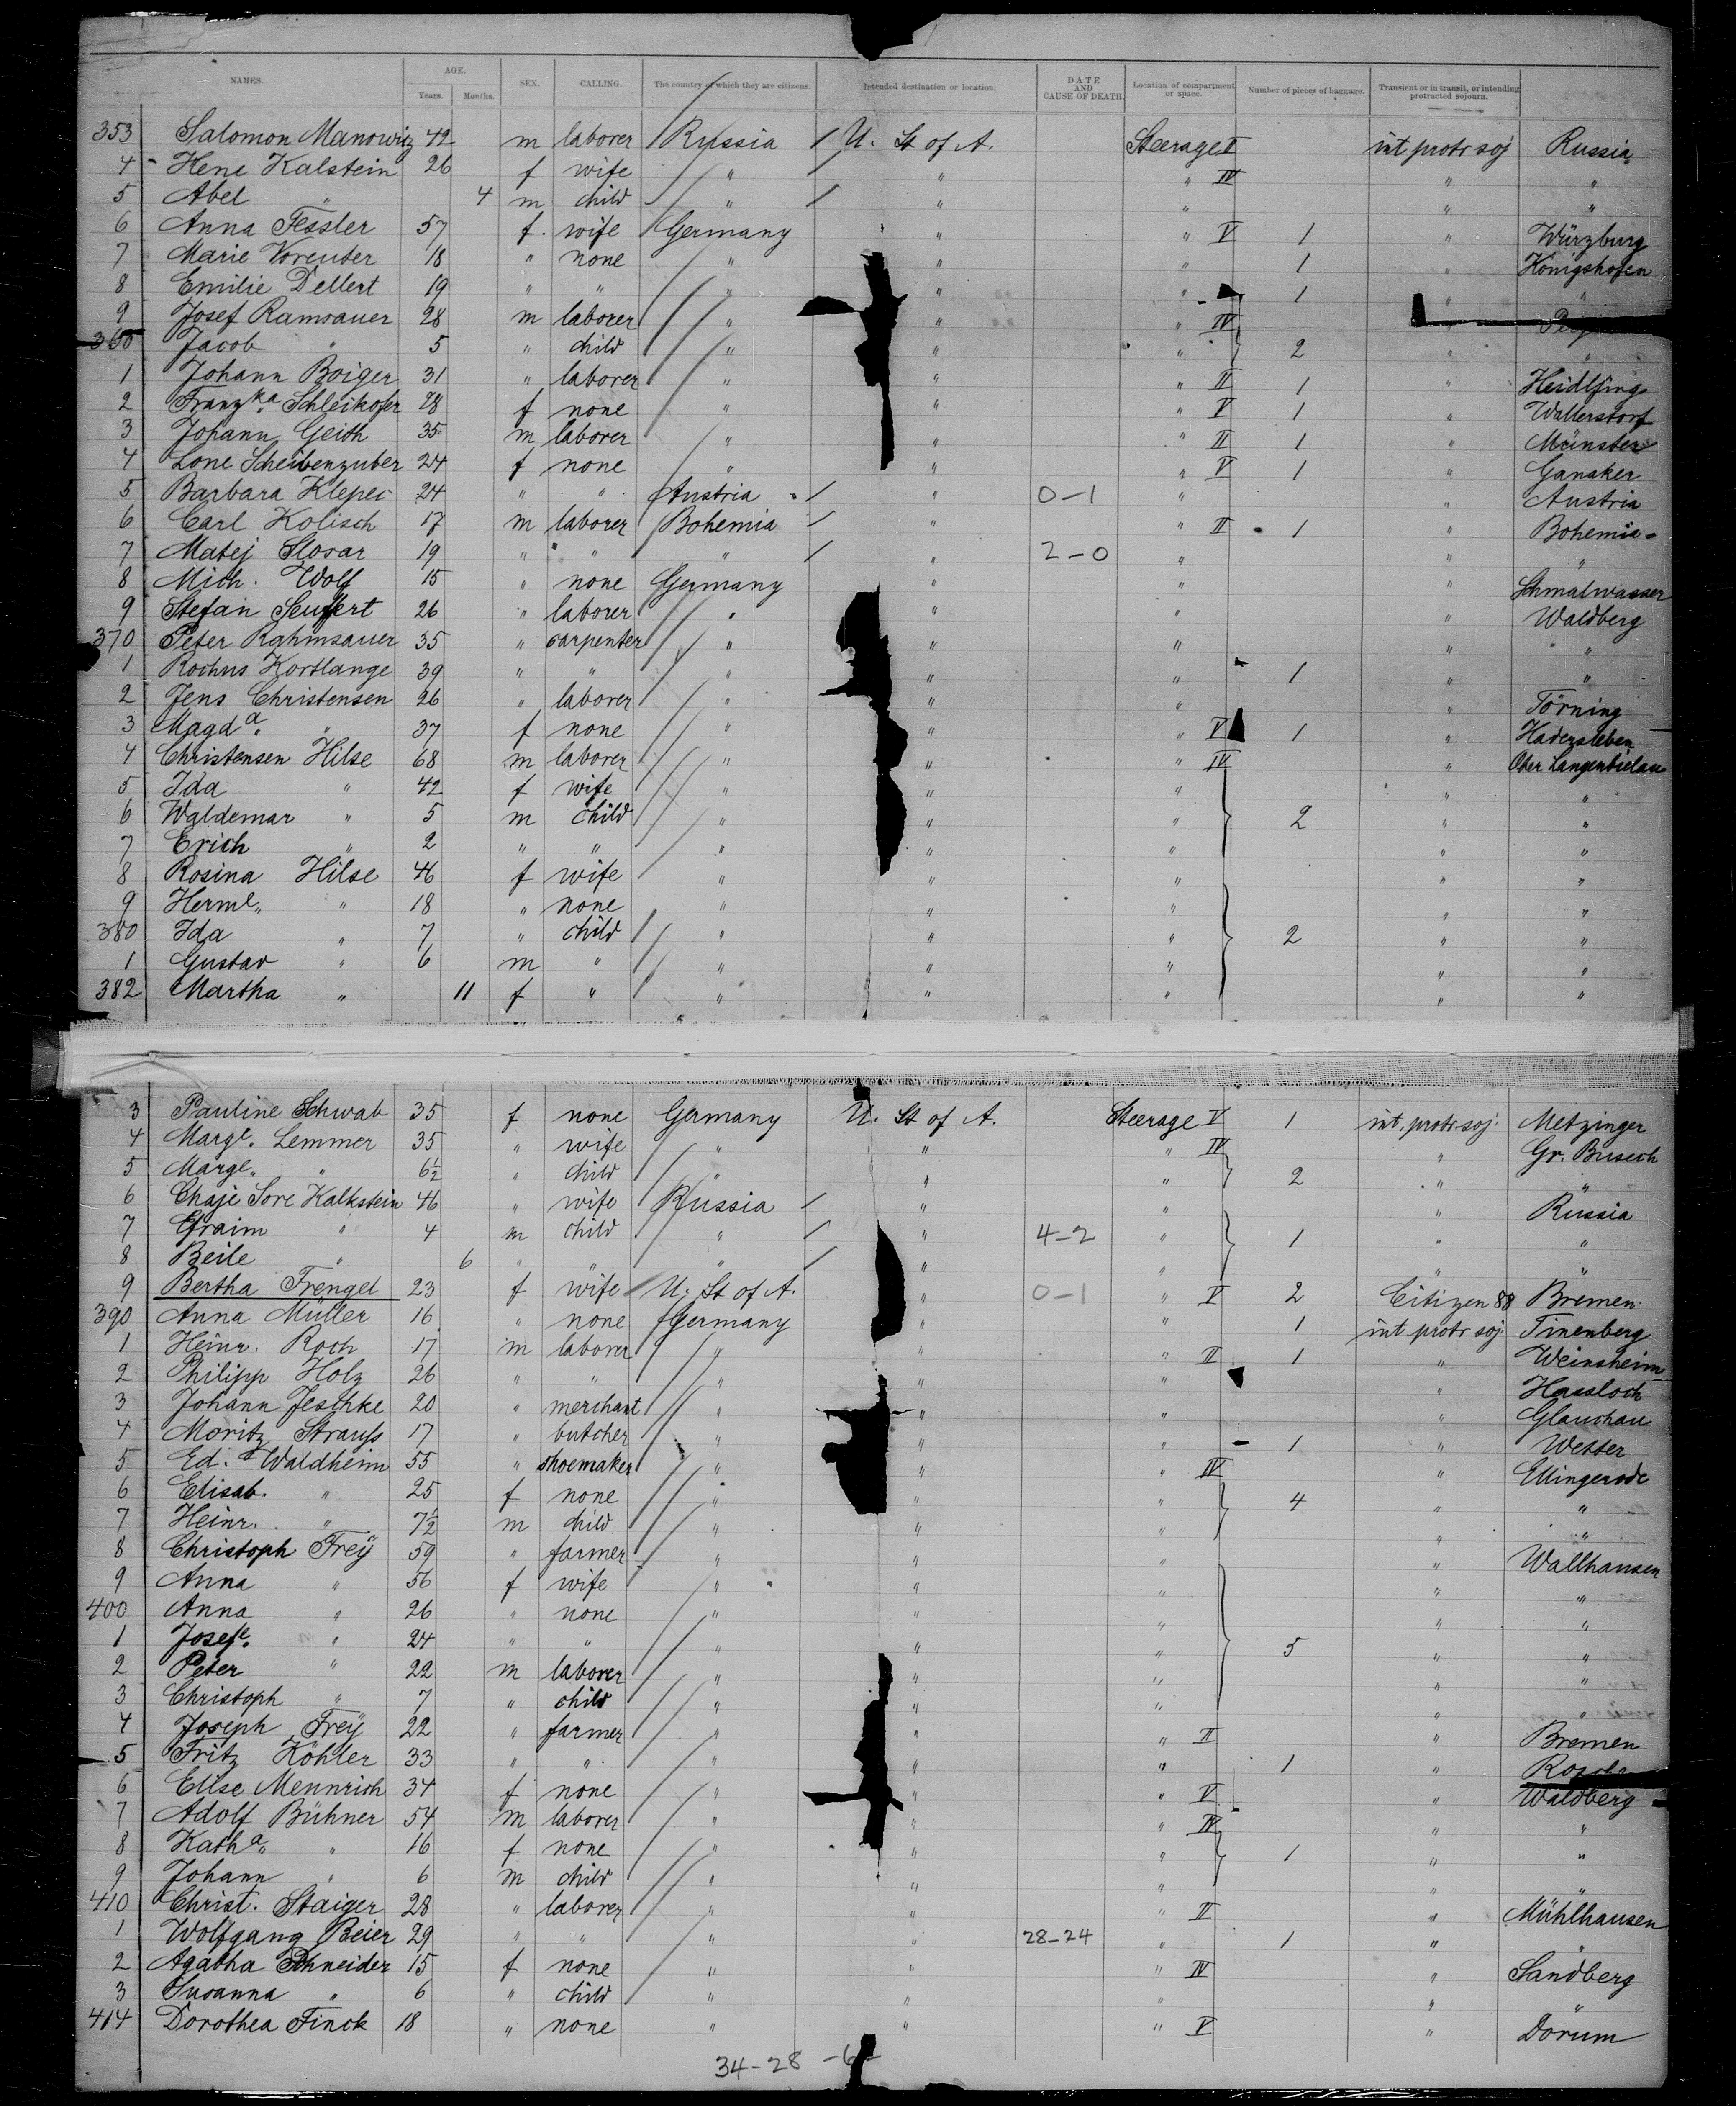 NAMES. AGE. Years. Months. SEX. CALLING. The country of which they are citizens. Intended destination or location. DATE AND CAUSE OF DEATH. Location of compartment or space. Number of pieces of baggage. Transient or in transit, or intending protracted sojourn.
353 Salomon Manowitz 42 m laborer Russia / U. St of A. Steerage II int protr soj Russia
4 Hene Kalstein 26 f wife " " " IV " "
5 Abel " 4 m child " / " " " "
6 Anna Fessler 57 f. wife Germany " " V 1 " Würzburg
7 Marie Vorenter 18 " none " " " 1 " Königshofen
8 Emilie Dellert 19 " " " " " 1 " "
9 Josef Ramsauer 28 m laborer " " " IV
360 Jacob " 5 " child " " " 2 " "
1 Johann Boiger 31 " laborer " " " II 1 " Heidlfing
2 Franzka Schleikofer 28 f none " " " V 1 " Wallerstorf
3 Johann Geith 35 m laborer " " " II 1 " Münster
4 Lone Scheibenzuber 24 f none " " " V 1 " Gansker
5 Barbara Klepec 24 " " Austria / " 0-1 " " Austria
6 Carl Kolisch 17 m laborer Bohemia / " " II 1 " Bohemia
7 Matej Slosar 19 " " " / " 2-0 " " "
8 Mich. Wolf 15 " none Germany " " " Schmalwasser
9 Stefan Seuffert 26 " laborer " " " " Waldberg
370 Peter Rahmsauer 35 " carpenter " " " " "
1 Rochus Kortlange 39 " " " " " 1 " "
2 Jens Christensen 26 " laborer " " " " Törning
3 Magda. " 37 f none " " " V 1 " Hadersleben
4 Christensen Hilse 68 m laborer " " " IV " Ober Langenbielau
5 Ida " 42 f wife " " " " "
6 Waldemar " 5 m child " " " 2 " "
7 Erich " 2 " " " " " " "
8 Rosina Hilse 46 f wife " " " " "
9 Herme. " 18 " none " " " " "
380 Ida " 7 " child " " " 2 " "
1 Gustav " 6 m " " " " " "
382 Martha " 11 f " " " " " "
3 Pauline Schwab 35 f none Germany U. St of A. Steerage V 1 int. protr soj. Metzinger
4 Marge. Lemmer 35 " wife " " " IV " Gr. Busech
5 Marge. " 6½ " child " " " 2 " "
6 Chaje Sore Kalkstein 46 " wife Russia / " " " Russia
7 Efraim " 4 m child " / " 4-2 " 1 " "
8 Beile " 6 " " " / " " " "
9 Bertha Frengel 23 f wife U. St of A. " 0-1 " V 2 Citizen 88 Bremen
390 Anna Müller 16 " none Germany " " 1 int protr soj Tinenberg
1 Heinr. Roch 17 m laborer " " " II 1 " Weinsheim
2 Philipp Holz 26 " " " " " " Hassloch
3 Johann Jeschke 20 " merchant " " " " Glauchau
4 Moritz Strauss 17 " butcher " " " 1 " Wetter
5 Ed. Waldheim 55 " shoemaker " " " IV " Ellingerode
6 Elisab. " 25 f none " " " 4 " "
7 Heinr. " 7½ m child " " " " "
8 Christoph Frey 59 " farmer " " " " Wallhausen
9 Anna " 56 f wife " " " " "
400 Anna " 26 " none " " " " "
1 Josefe. " 24 " " " " " 5 " "
2 Peter " 22 m laborer " " " " "
3 Christoph " 7 " child " " " " "
4 Joseph Frey 22 " farmer " " " II " Bremen
5 Fritz Köhler 33 " " " " " 1 "
6 Elise Mennrich 34 f none " " " V " Waldberg
7 Adolf Bühner 54 m laborer " " " IV " "
8 Katha. " 16 f none " " " 1 " "
9 Johann " 6 m child " " " " "
410 Christ. Staiger 28 " laborer " " " II " Mühlhausen
1 Wolfgang Beier 29 " " " " 28-24 " 1 " "
2 Agatha Schneider 15 f none " " " IV " Sandberg
3 Susanna " 6 " child " " " " "
414 Dorothea Finck 18 " none " " " V " Dorum
34-28